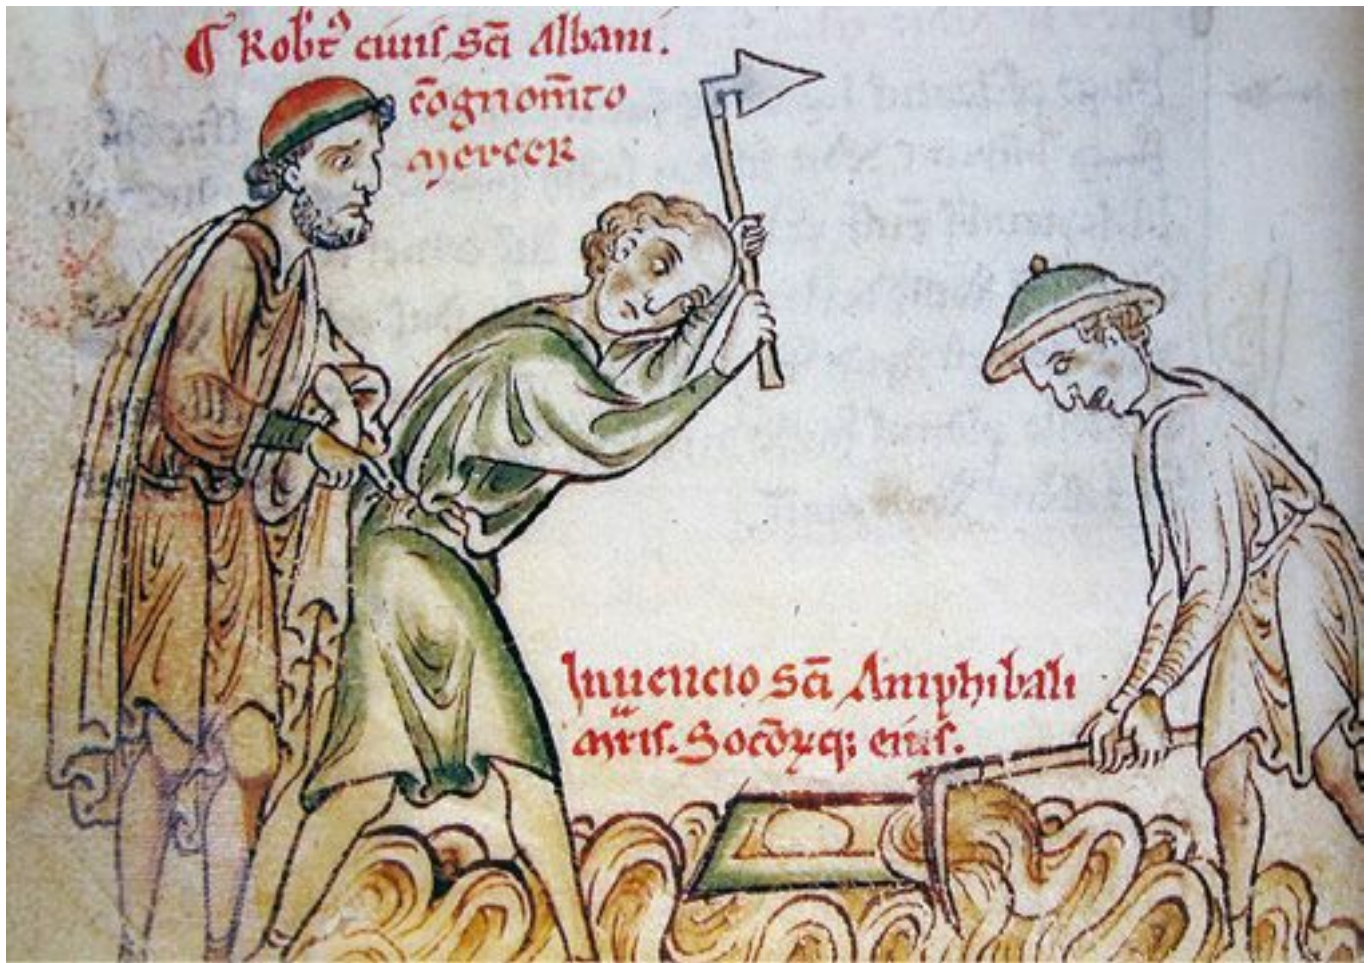 ¶ Robt᷒ ciuis sc̄i Albani.
c̄ognom̄to
mercer
Inuencio sc̄i Amphibali
mr̄is. Socōrꝝq; eius.